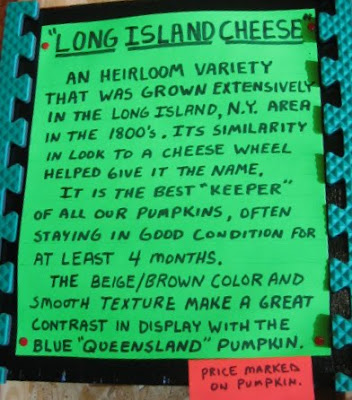 "LONG ISLAND CHEESE"
AN HEIRLOOM VARIETY
THAT WAS GROWN EXTENSIVELY
IN THE LONG ISLAND, N.Y. AREA
IN THE 1800'S. ITS SIMILARITY
IN LOOK TO A CHEESE WHEEL
HELPED GIVE IT THE NAME.
IT IS THE BEST "KEEPER"
OF ALL OUR PUMPKINS, OFTEN
STAYING IN GOOD CONDITION FOR
AT LEAST 4 MONTHS.
THE BEIGE/BROWN COLOR AND
SMOOTH TEXTURE MAKE A GREAT
CONTRAST IN DISPLAY WITH THE
BLUE "QUEENSLAND" PUMPKIN.
PRICE MARKED
ON PUMPKIN.